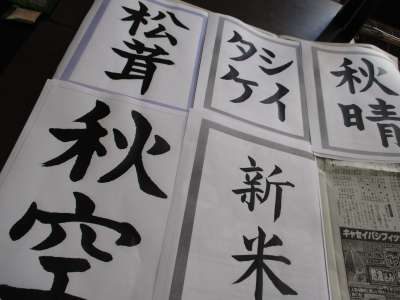 松茸
シイ
タケ
秋晴
秋空
新米
キャセイパシフィッ